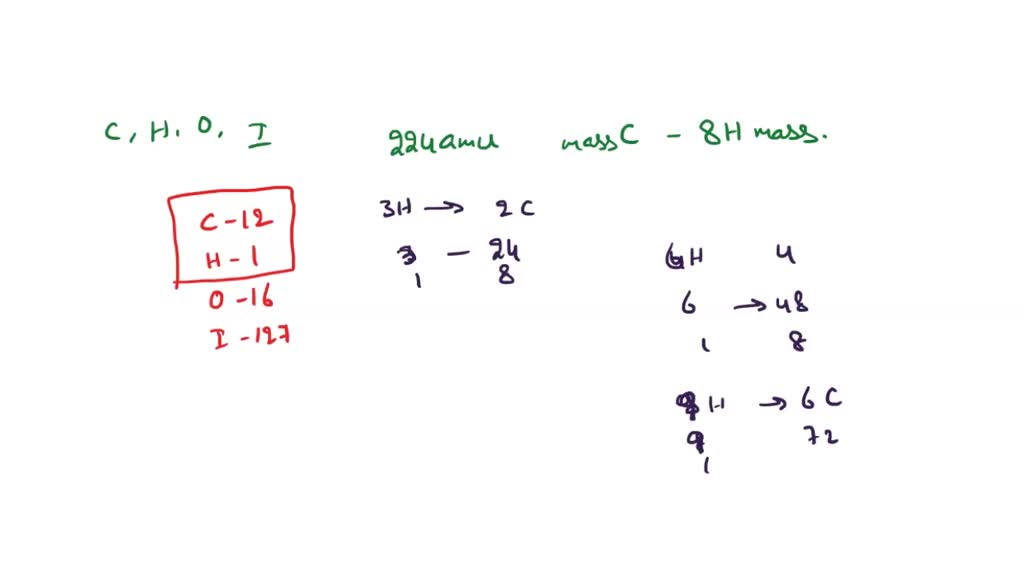 C, H, O, I 224amu mass C - 8H mass.
C - 12
H - 1
O - 16
I - 127
3H → 2C
3 - 24
1 8
6H 4
6 → 48
1 8
9H → 6C
9 72
1